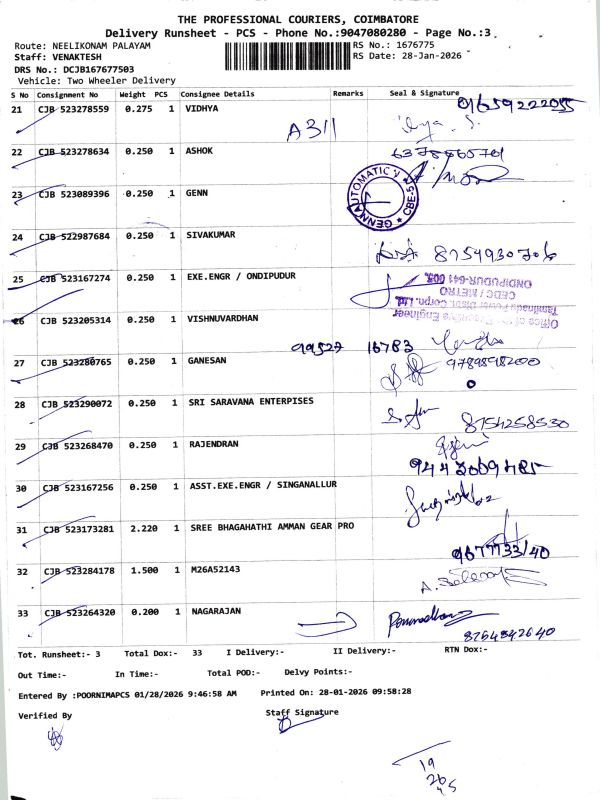 THE PROFESSIONAL COURIERS, COIMBATORE
Delivery Runsheet - PCS - Phone No.:9047080280 - Page No.:3
Route: NEELIKONAM PALAYAM RS No.: 1676775
Staff: VENAKTESH RS Date: 28-Jan-2026
DRS No.: DCJB167677503
Vehicle: Two Wheeler Delivery
S No Consignment No Weight PCS Consignee Details Remarks Seal & Signature
21 CJB 523278559 0.275 1 VIDHYA
A311
22 CJB 523278634 0.250 1 ASHOK
23 CJB 523089396 0.250 1 GENN
GENN AUTOMATIC
CBE-5
24 CJB 522987684 0.250 1 SIVAKUMAR
25 CJB 523167274 0.250 1 EXE.ENGR / ONDIPUDUR
ONDIPUDUR-641 005.
CEDC / METRO
Tamilnadu Power Distri. Corpn. Ltd.
Executive Engineer
26 CJB 523205314 0.250 1 VISHNUVARDHAN
99527 16783
27 CJB 523280765 0.250 1 GANESAN
9789898200
28 CJB 523290072 0.250 1 SRI SARAVANA ENTERPISES
8754258530
29 CJB 523268470 0.250 1 RAJENDRAN
30 CJB 523167256 0.250 1 ASST.EXE.ENGR / SINGANALLUR
31 CJB 523173281 2.220 1 SREE BHAGAHATHI AMMAN GEAR PRO
32 CJB 523284178 1.500 1 M26A52143
33 CJB 523264320 0.200 1 NAGARAJAN
8754842640
Tot. Runsheet:- 3 Total Dox:- 33 I Delivery:- II Delivery:- RTN Dox:-
Out Time:- In Time:- Total POD:- Delvy Points:-
Entered By :POORNIMAPCS 01/28/2026 9:46:58 AM Printed On: 28-01-2026 09:58:28
Verified By Staff Signature
19